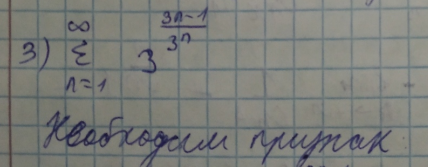 3) ∞ Σ n=1 3^((3n-1)/3n)
Необходим признак